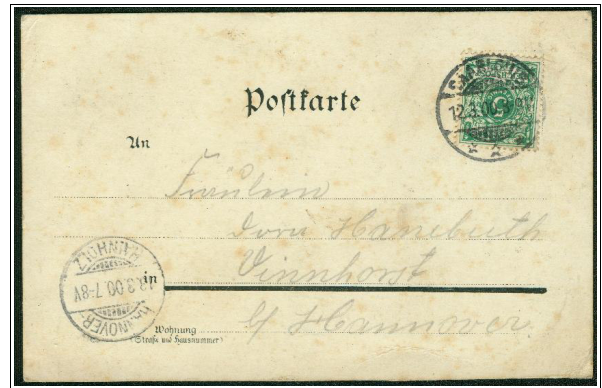 Postkarte
An
Fräulein
Dora Hanebuth
in Vinnhorst
b/ Hannover.
Wohnung
(Straße und Hausnummer)
12.3.00.
5
HAINHOLZ
13.3.00.7-8V
HANNOVER-